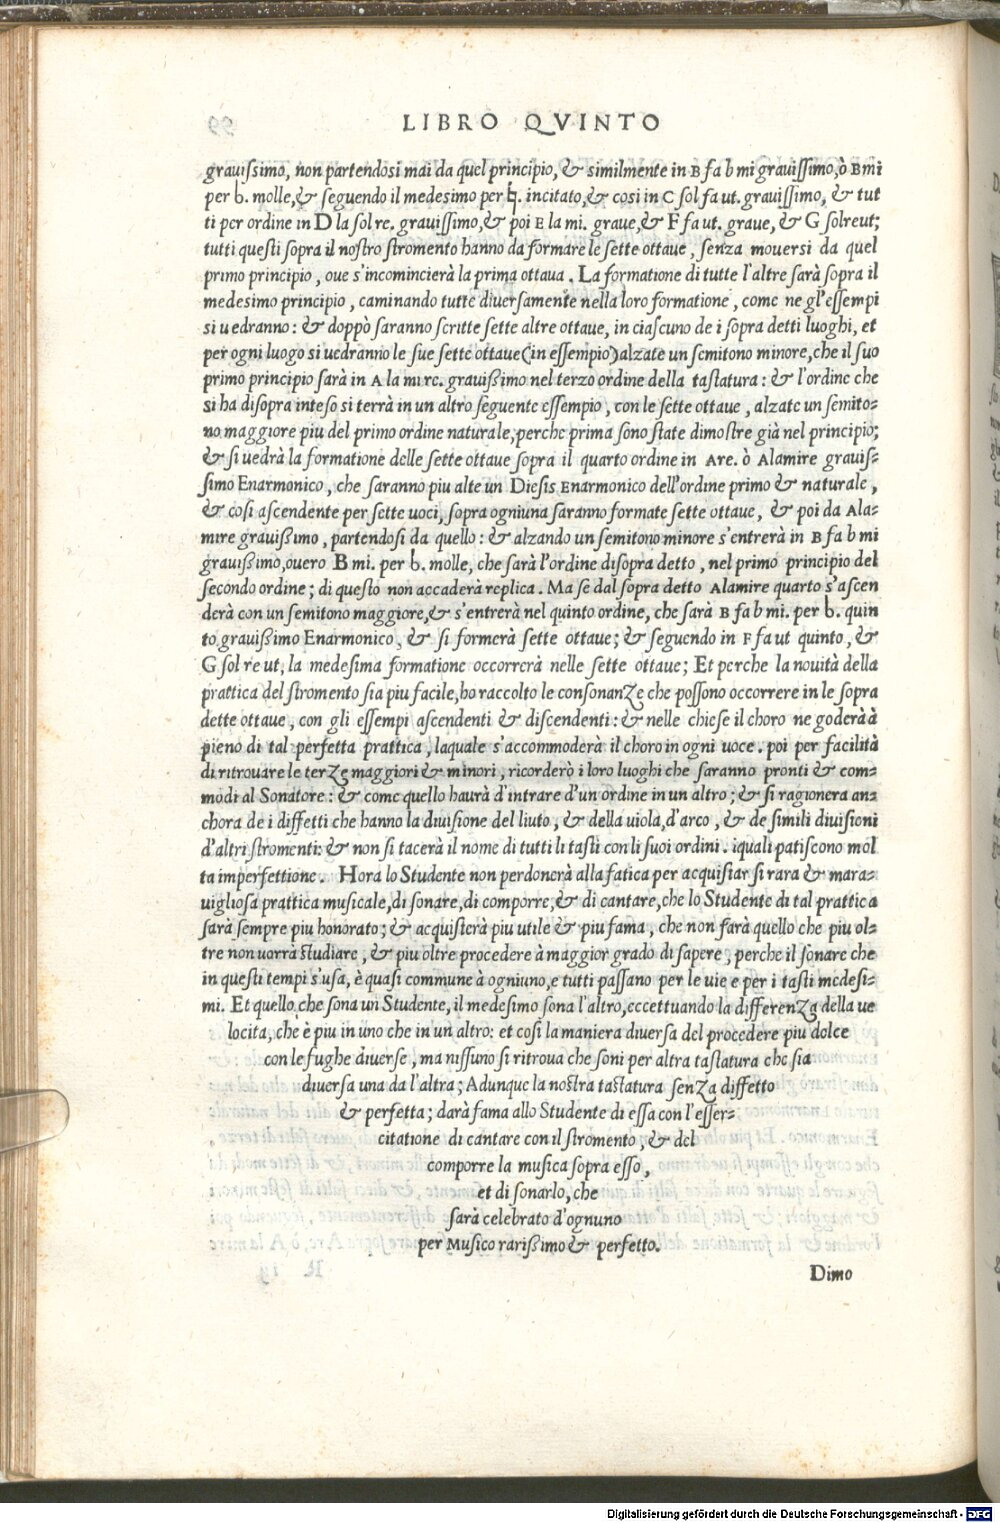 LIBRO QVINTO
grauissimo, non partendosi mai da quel principio, & similmente in B fa b mi grauissimo, ò B mi
per b. molle, & seguendo il medesimo per ♮. incitato, & cosi in C sol fa ut. grauissimo, & tut
ti per ordine in D la sol re. grauissimo, & poi E la mi. graue, & F fa ut. graue, & G solreut;
tutti questi sopra il nostro stromento hanno da formare le sette ottaue, senza mouersi da quel
primo principio, oue s'incomincierà la prima ottaua. La formatione di tutte l'altre sarà sopra il
medesimo principio, caminando tutte diuersamente nella loro formatione, come ne gl'essempi
si uedranno: & doppò saranno scritte sette altre ottaue, in ciascuno de i sopra detti luoghi, et
per ogni luogo si uedranno le sue sette ottaue (in essempio) alzate un semitono minore, che il suo
primo principio sarà in A la mi re. grauißimo nel terzo ordine della tastatura: & l'ordine che
si ha disopra inteso si terrà in un altro seguente essempio, con le sette ottaue, alzate un semito=
no maggiore piu del primo ordine naturale, perche prima sono state dimostre già nel principio;
& si uedrà la formatione delle sette ottaue sopra il quarto ordine in Are. ò Alamire grauis=
simo Enarmonico, che saranno piu alte un Diesis Enarmonico dell'ordine primo & naturale,
& cosi ascendente per sette uoci, sopra ogniuna saranno formate sette ottaue, & poi da Ala=
mire grauißimo, partendosi da quello: & alzando un semitono minore s'entrerà in B fa b mi
grauißimo, ouero B mi. per b. molle, che sarà l'ordine disopra detto, nel primo principio del
secondo ordine; di questo non accaderà replica. Ma se dal sopra detto Alamire quarto s'ascen
derà con un semitono maggiore, & s'entrerà nel quinto ordine, che sarà B fa b mi. per b. quin
to grauißimo Enarmonico, & si formerà sette ottaue; & seguendo in F fa ut quinto, &
G sol re ut, la medesima formatione occorrerà nelle sette ottaue; Et perche la nouità della
prattica del stromento sia piu facile, ho raccolto le consonanze che possono occorrere in le sopra
dette ottaue, con gli essempi ascendenti & discendenti: & nelle chiese il choro ne goderà à
pieno di tal perfetta prattica, laquale s'accommoderà il choro in ogni uoce. poi per facilità
di ritrouare le terze maggiori & minori, ricorderò i loro luoghi che saranno pronti & com=
modi al Sonatore: & come quello haurà d'intrare d'un ordine in un altro; & si ragionera an=
chora de i diffetti che hanno la diuisione del liuto, & della uiola, d'arco, & de simili diuisioni
d'altri stromenti: & non si tacerà il nome di tutti li tasti con li suoi ordini. iquali patiscono mol
ta imperfettione. Hora lo Studente non perdonerà alla fatica per acquistar si rara & mara=
uigliosa prattica musicale, di sonare, di comporre, & di cantare, che lo Studente di tal prattica
sarà sempre piu honorato; & acquisterà piu utile & piu fama, che non farà quello che piu ol=
tre non uorrà studiare, & piu oltre procedere à maggior grado di sapere, perche il sonare che
in questi tempi s'usa, è quasi commune à ogniuno, e tutti passano per le uie e per i tasti medesi=
mi. Et quello che sona un Studente, il medesimo sona l'altro, eccettuando la differenza della ue
locita, che è piu in uno che in un altro: et cosi la maniera diuersa del procedere piu dolce
con le fughe diuerse, ma nissuno si ritroua che soni per altra tastatura che sia
diuersa una da l'altra; Adunque la nostra tastatura senza diffetto
& perfetta; darà fama allo Studente di essa con l'esser=
citatione di cantare con il stromento, & del
comporre la musica sopra esso,
et di sonarlo, che
sarà celebrato d'ognuno
per Musico rarißimo & perfetto.
Dimo
Digitalisierung gefördert durch die Deutsche Forschungsgemeinschaft - DFG